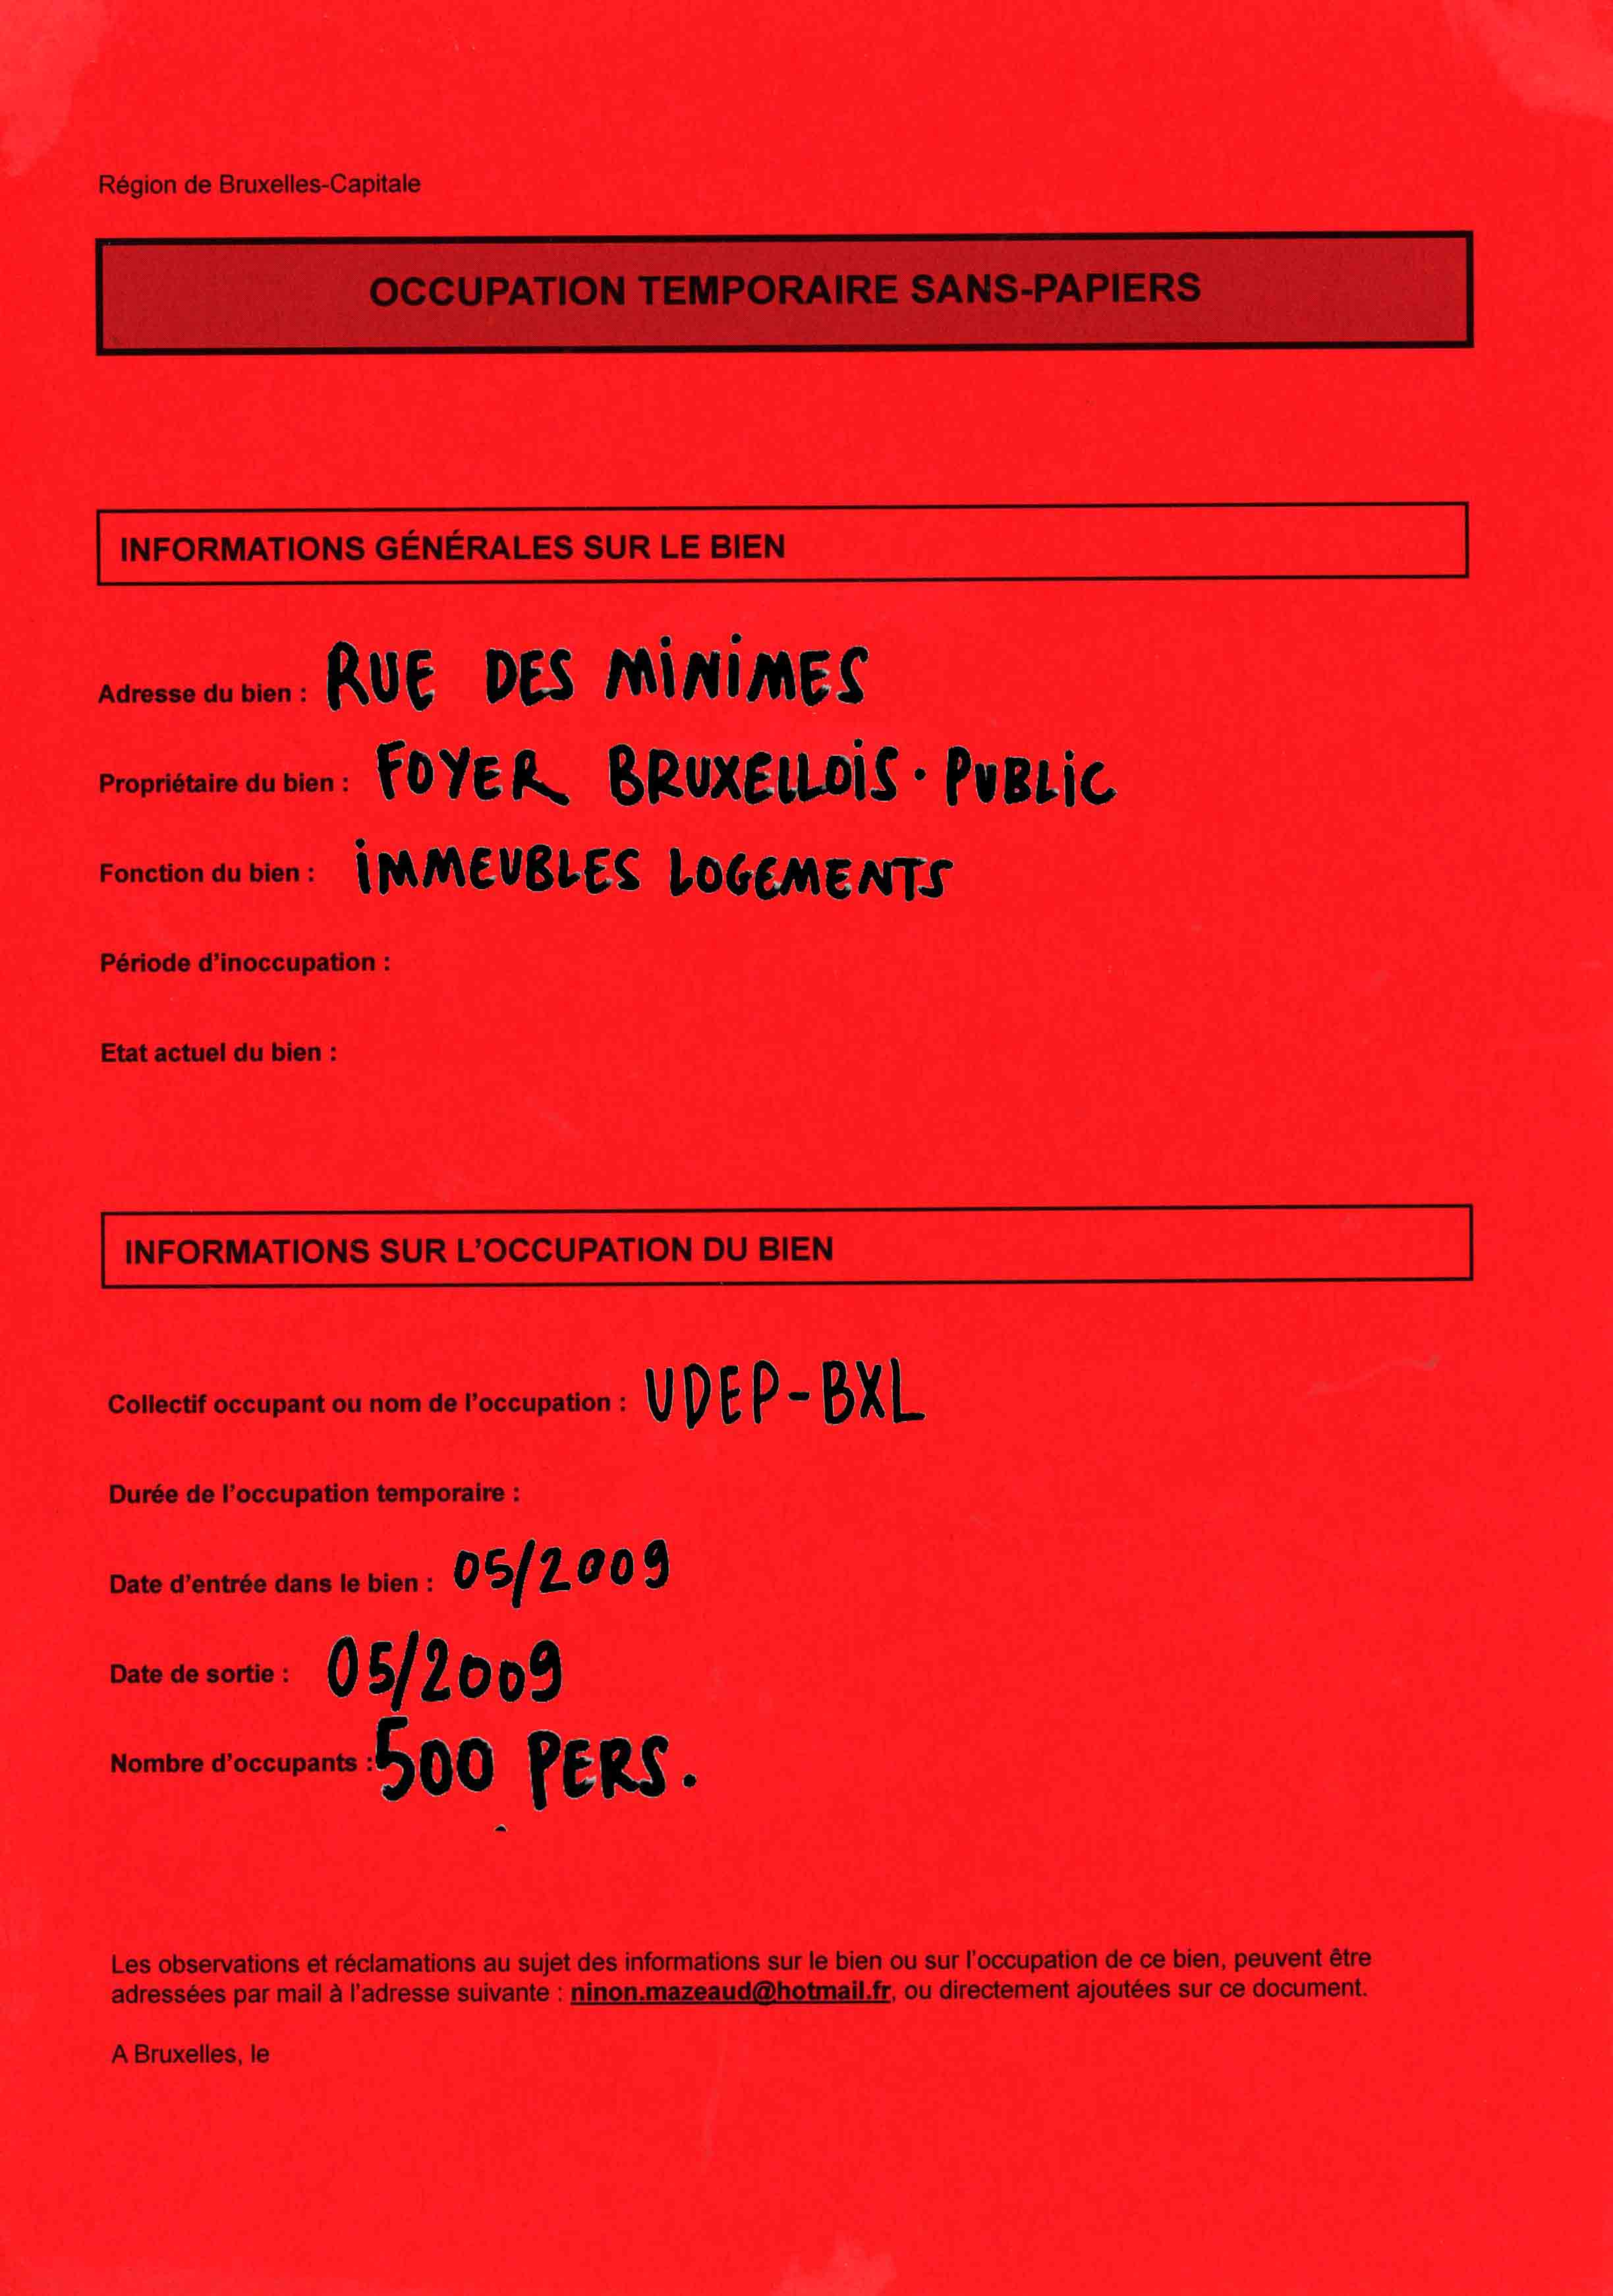 Région de Bruxelles-Capitale
OCCUPATION TEMPORAIRE SANS-PAPIERS
INFORMATIONS GÉNÉRALES SUR LE BIEN
Adresse du bien : RUE DES MINIMES
Propriétaire du bien : FOYER BRUXELLOIS · PUBLIC
Fonction du bien : IMMEUBLES LOGEMENTS
Période d'inoccupation :
Etat actuel du bien :
INFORMATIONS SUR L'OCCUPATION DU BIEN
Collectif occupant ou nom de l'occupation : UDEP-BXL
Durée de l'occupation temporaire :
Date d'entrée dans le bien : 05/2009
Date de sortie : 05/2009
Nombre d'occupants : 500 PERS.
Les observations et réclamations au sujet des informations sur le bien ou sur l'occupation de ce bien, peuvent être
adressées par mail à l'adresse suivante : ninon.mazeaud@hotmail.fr, ou directement ajoutées sur ce document.
A Bruxelles, le